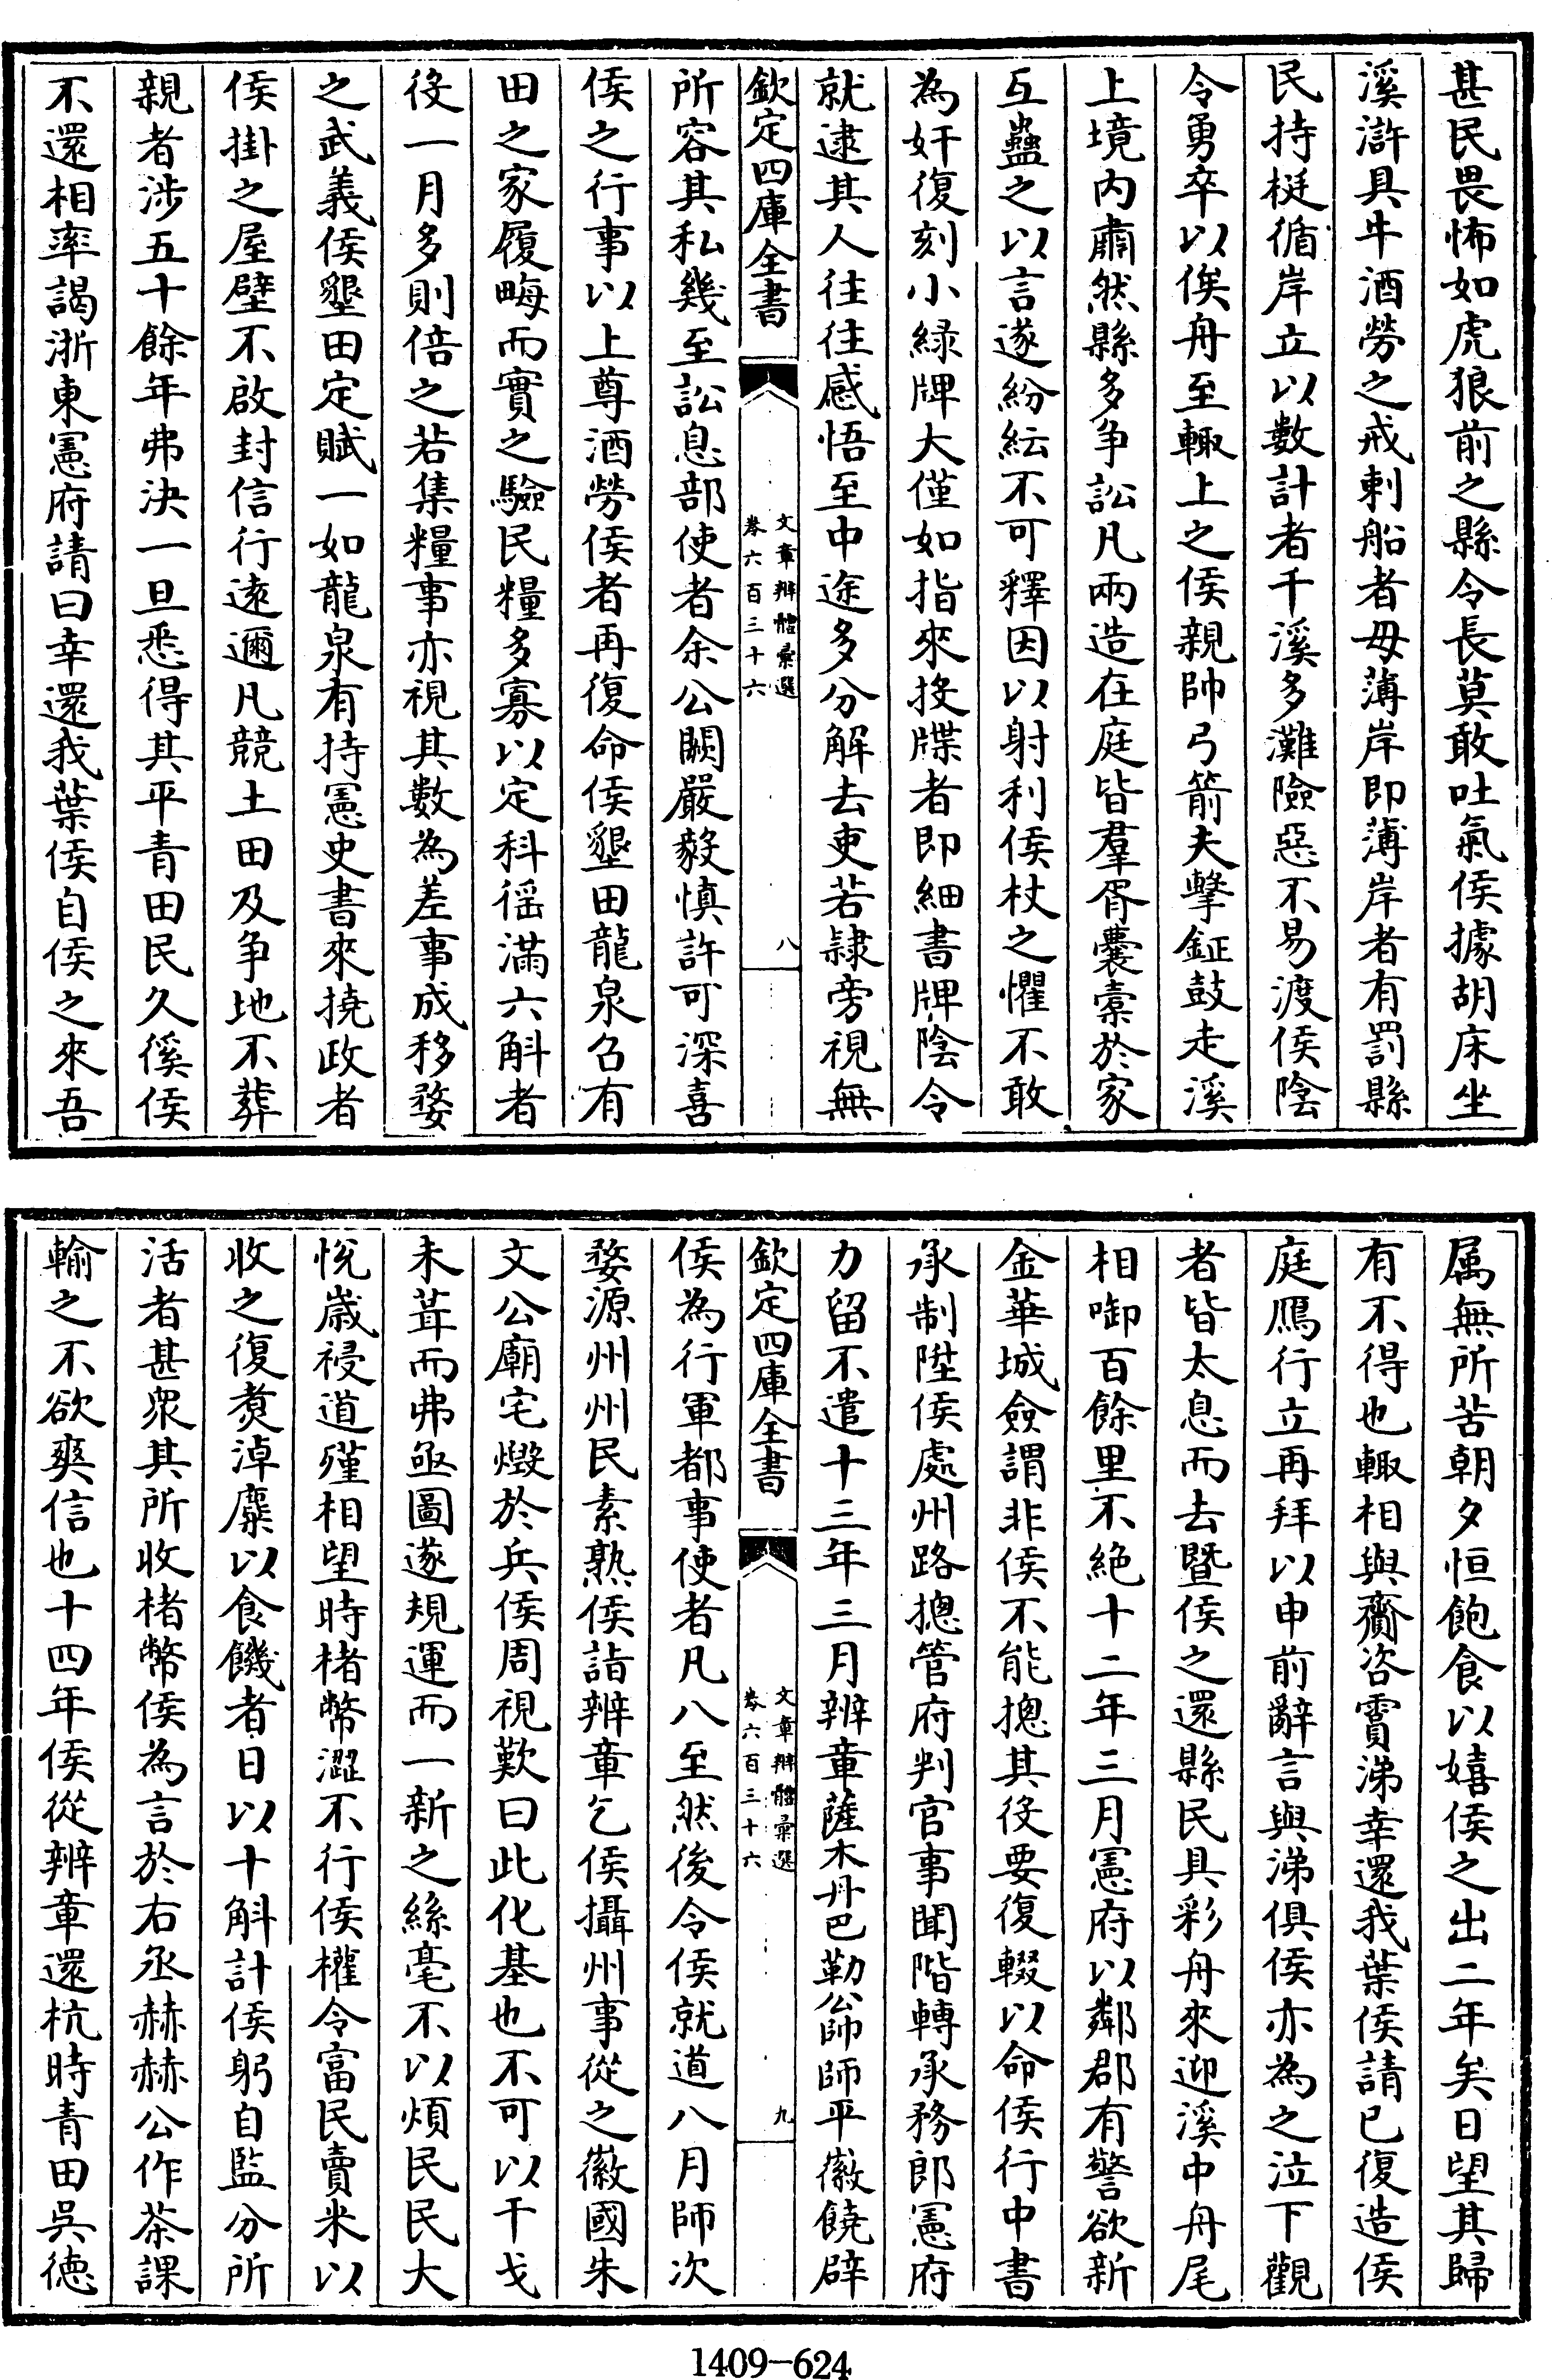 甚民畏怖如虎狼前之縣令長莫敢吐氣侯據胡床坐
溪滸具牛酒勞之戒刺船者毋薄岸即薄岸者有罰縣
民持梃循岸立以數計者千溪多灘險惡不易渡侯陰
令勇卒以俟舟至輙上之侯親帥弓箭夫擊鉦鼓走溪
上境内肅然縣多争訟凡兩造在庭皆羣胥囊槖於家
互蠱之以言遂紛紜不可釋因以射利侯杖之懼不敢
為奸復刻小緑牌大僅如指來投牒者即細書牌隂令
就逮其人往往感悟至中途多分解去吏若隷旁視無
欽定四庫全書
文章辨體彙選
卷六百三十六
八
所容其私幾至訟息部使者余公闕嚴毅慎許可深喜
侯之行事以上尊酒勞侯者再復命侯墾田龍泉名有
田之家履畮而實之驗民糧多寡以定科徭滿六斛者
役一月多則倍之若集糧事亦視其數為差事成移婺
之武義侯墾田定賦一如龍泉有持憲史書來撓政者
侯掛之屋壁不啟封信行逺邇凡競土田及争地不葬
親者涉五十餘年弗决一旦悉得其平青田民久徯侯
不還相率謁浙東憲府請曰幸還我葉侯自侯之來吾
属無所苦朝夕恒飽食以嬉侯之出二年矣日望其歸
有不得也輙相與齎咨霣涕幸還我葉侯請已復造侯
庭鴈行立再拜以申前辭言與涕俱侯亦為之泣下觀
者皆太息而去暨侯之還縣民具彩舟來迎溪中舟尾
相啣百餘里不絶十二年三月憲府以鄰郡有警欲新
金華城僉謂非侯不能摠其役要復輟以命侯行中書
承制陞侯處州路摠管府判官事聞階轉承務郎憲府
力留不遣十三年三月辨章薩木丹巴勒公帥師平徽饒辟
欽定四庫全書
文章辨體彙選
卷六百三十六
九
侯為行軍都事使者凡八至然後令侯就道八月師次
婺源州州民素熟侯詣辨章乞侯攝州事從之徽國朱
文公廟宅燬於兵侯周視歎曰此化基也不可以干戈
未葺而弗亟圖遂規運而一新之絲毫不以煩民民大
悅歲祲道殣相望時楮幣澀不行侯權令富民賣米以
收之復煑淖糜以食饑者日以十斛計侯躬自監分所
活者甚衆其所收楮幣侯為言於右丞赫赫公作茶課
輸之不欲爽信也十四年侯從辨章還杭時青田呉徳
1409-624